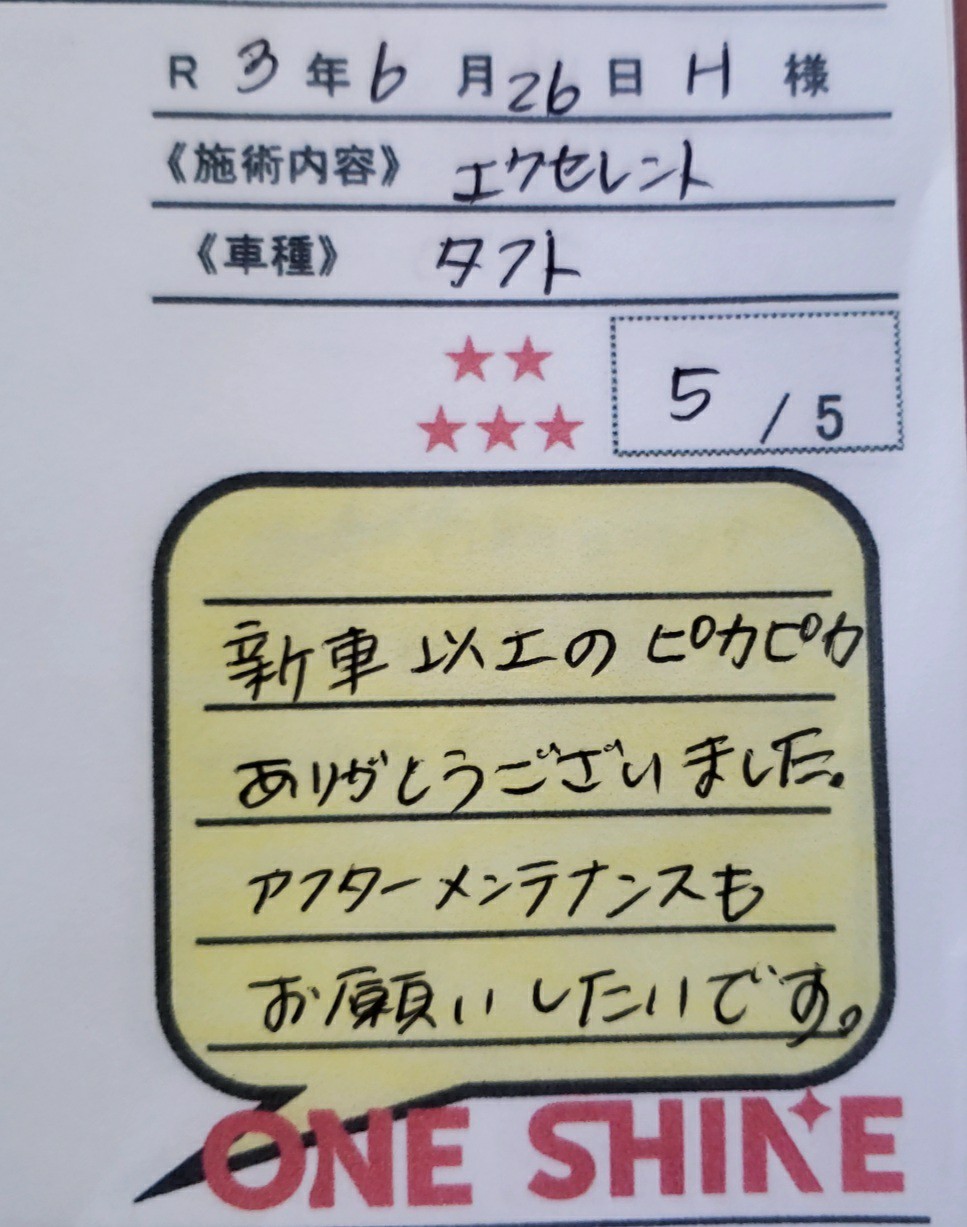 R 3年6月26日 H 様
《施術内容》 エクセレント
《車種》 タフト
★★
★★★
5 / 5
新車以上のピカピカ
ありがとうございました。
アフターメンテナンスも
お願いしたいです。
ONE SHINE